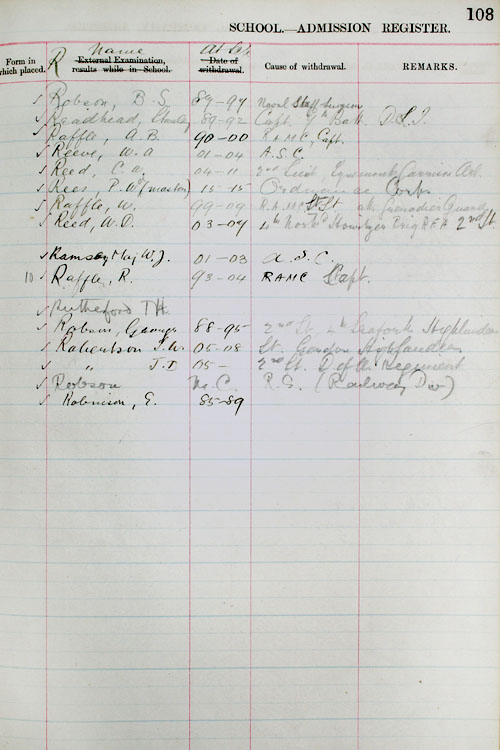 108
SCHOOL.—ADMISSION REGISTER.
Form in which placed. R Name External Examination, results while in School. At School Date of withdrawal. Cause of withdrawal. REMARKS.
✓ Robson, B. S. 89-94 Naval Staff Surgeon
✓ Readhead, 89-92 Capt. 9th Batt. D.L.I.
✓ Raffle, A.B. 90-00 R.A.M.C, Capt.
✓ Reeve, W.A 01-04 A.S.C.
✓ Reed, C.A. 04-11 2nd Lieut,
✓ Rees, P.W (master) 15-15 Ordnance Corps
✓ Raffle, W. 99-09 R.A.M.C Lt. Grenadier Guards
✓ Reed, W.O. 03-09 4th North'd Howitzer Brig RFA 2nd Lt.
✓ Ramsey W.J. 01-03 A.S.C.
10 ✓ Raffle, R. 93-04 RAMC Capt.
✓ Rutherford T.H.
✓ Robson, George 88-95 2nd Lt. 4th Seaforth Highlanders
✓ Robertson J.W. 05-08 Lt. Gordon Highlanders
✓ " J.D 05- 2nd Lt. Regiment
✓ Robson M.C. R.E. (Railway Div)
✓ Robinson, E. 85-89